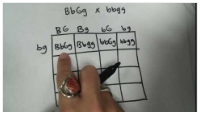 BbGg x bbgg
BG Bg bG bg
bg BbGg Bbgg bbGg bbgg